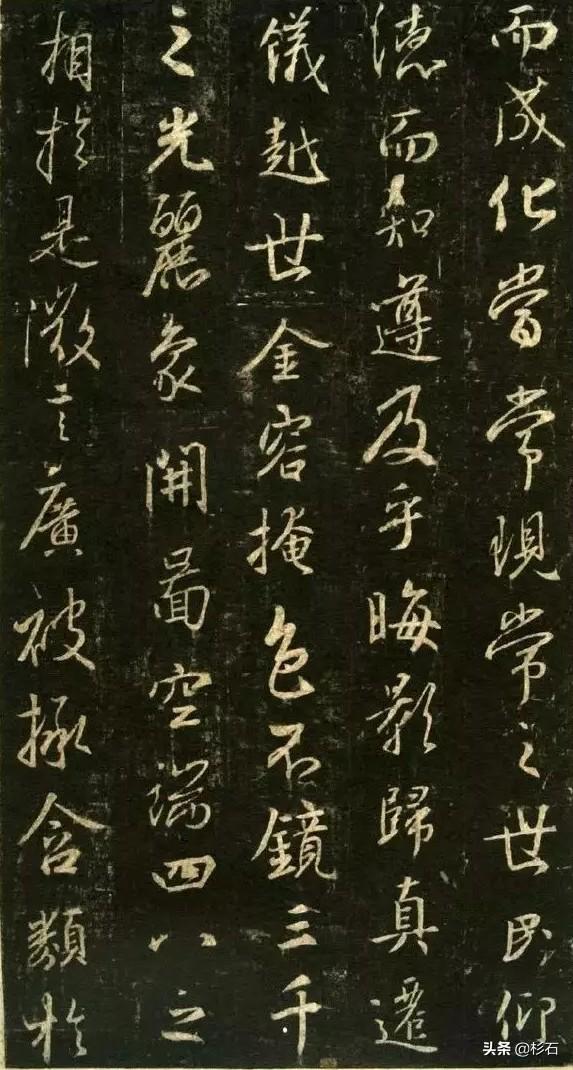 而成化當常現常之世民仰
德而知遵及乎晦影歸真遷
儀越世金容掩色不鏡三千
之光麗象開圖空端四八之
相於是微言廣被拯含類於
头条 @杉石